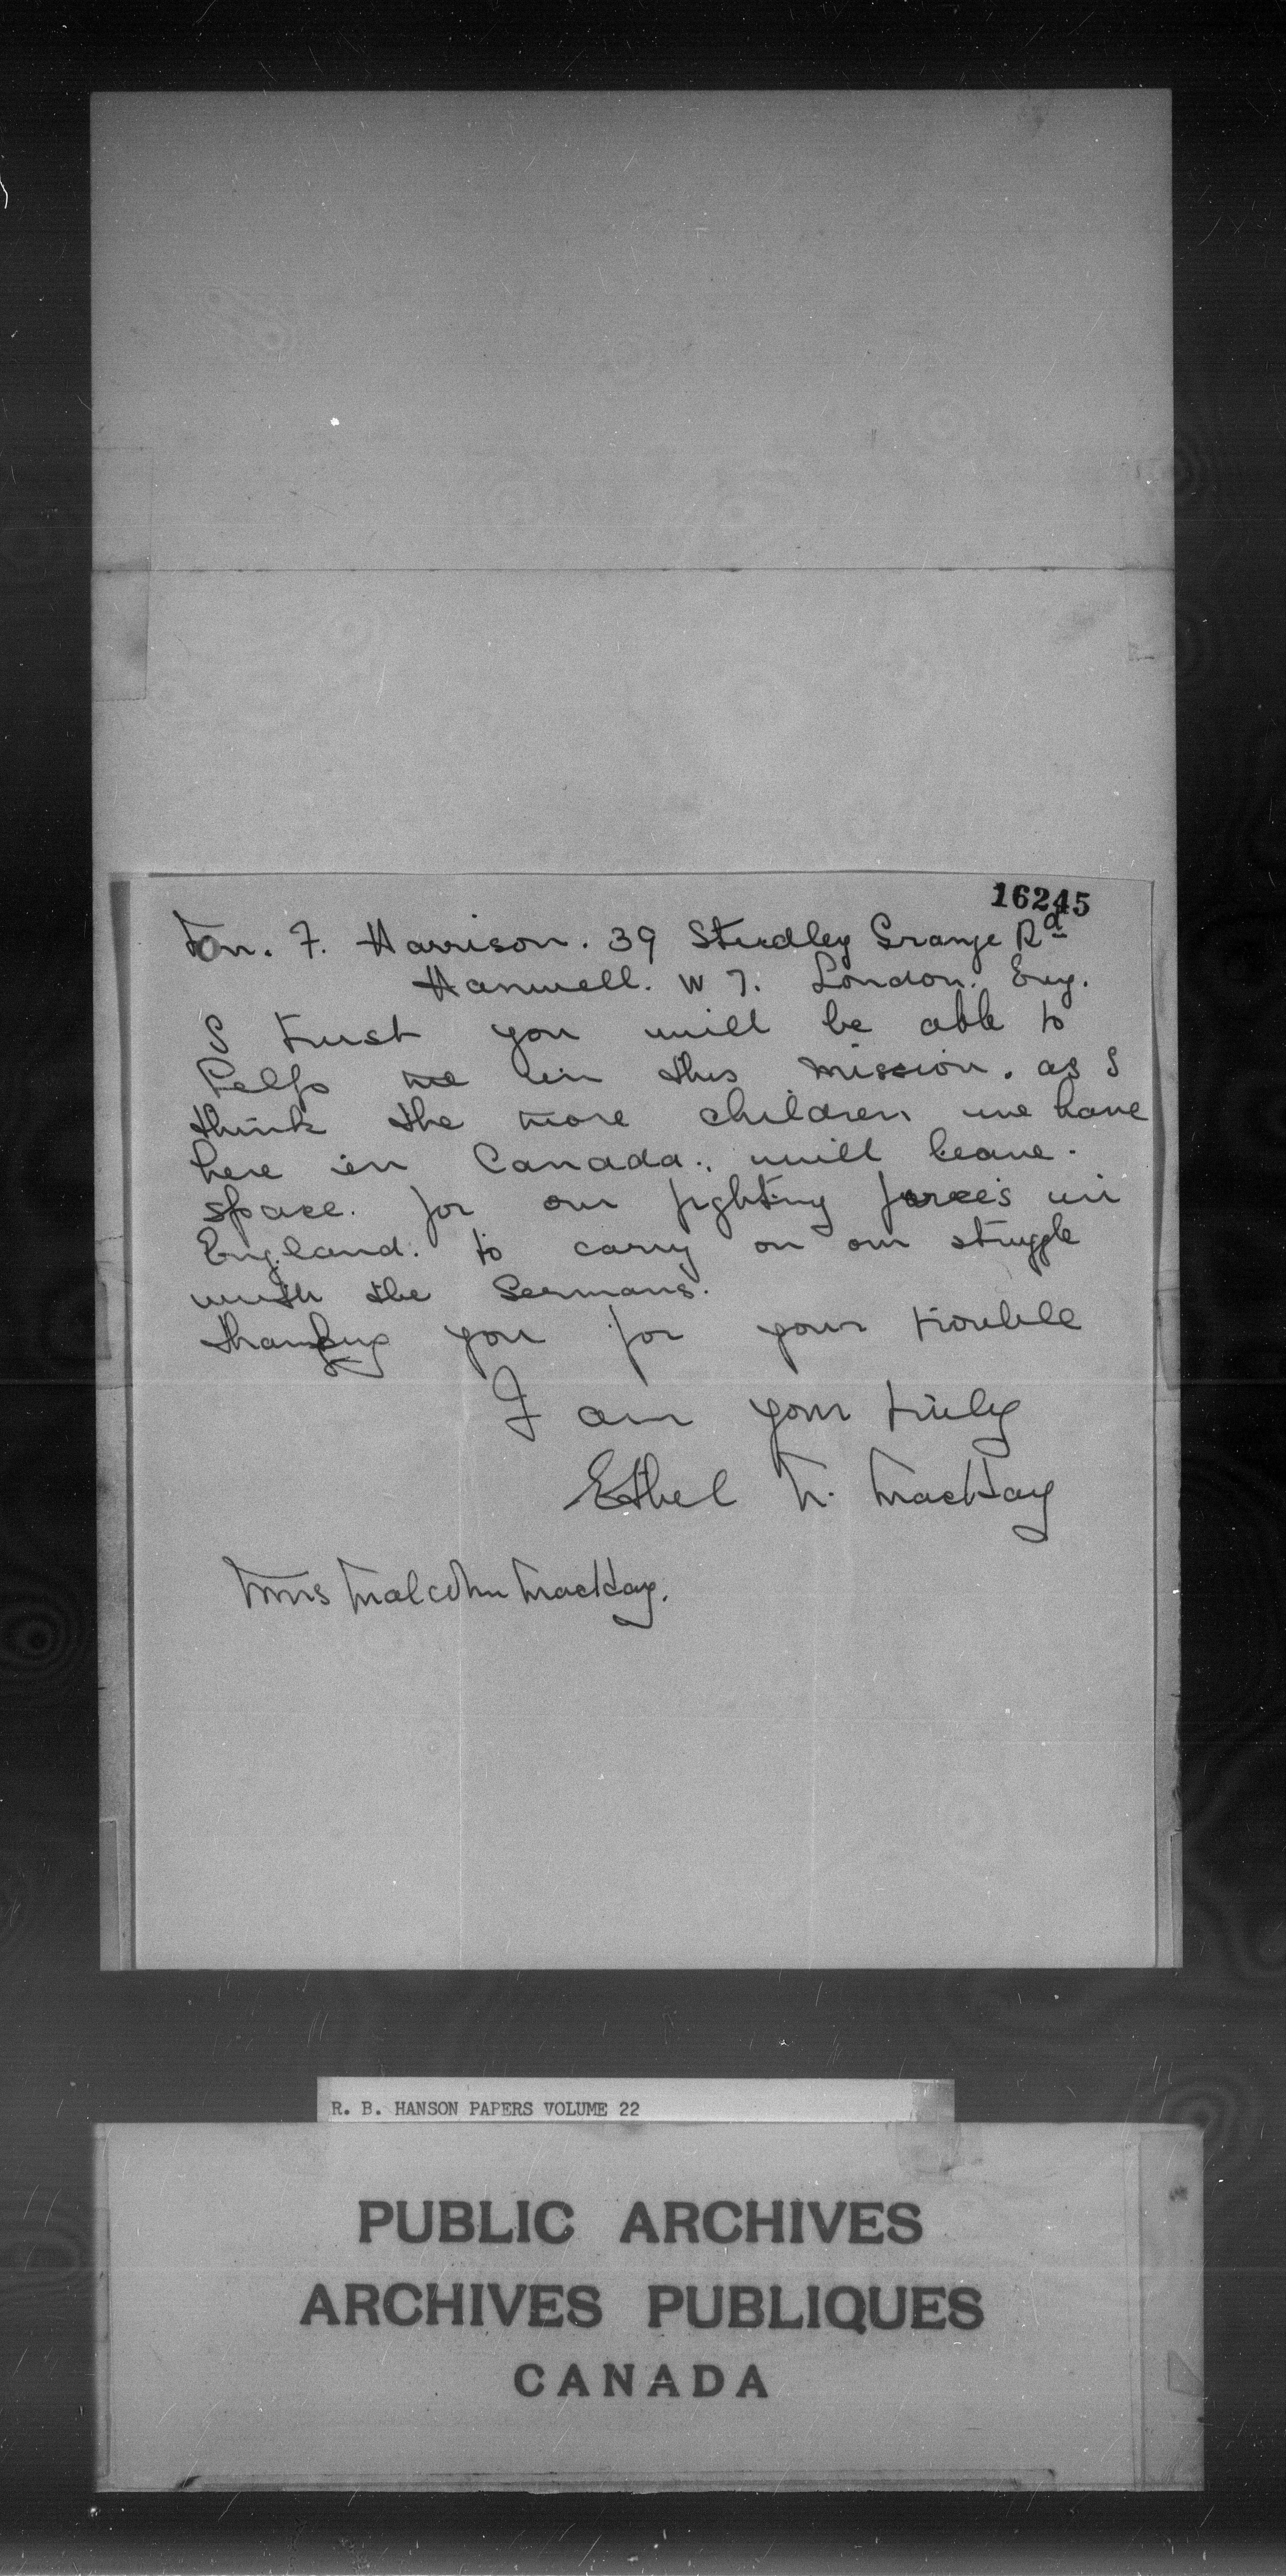 16245
Mr. F. Harrison. 39 Studley Grange Rd
Hanwell. W 7. London. Eng.
I trust you will be able to
help me in this mission. as I
think the more children we have
here in Canada., will leave.
space. for our fighting forces in
England. to carry on our struggle
with the Germans.
thanking you for your trouble
I am yours truly
Ethel M. MacKay
Mrs Malcolm MacKay.
R. B. HANSON PAPERS VOLUME 22
PUBLIC ARCHIVES
ARCHIVES PUBLIQUES
CANADA